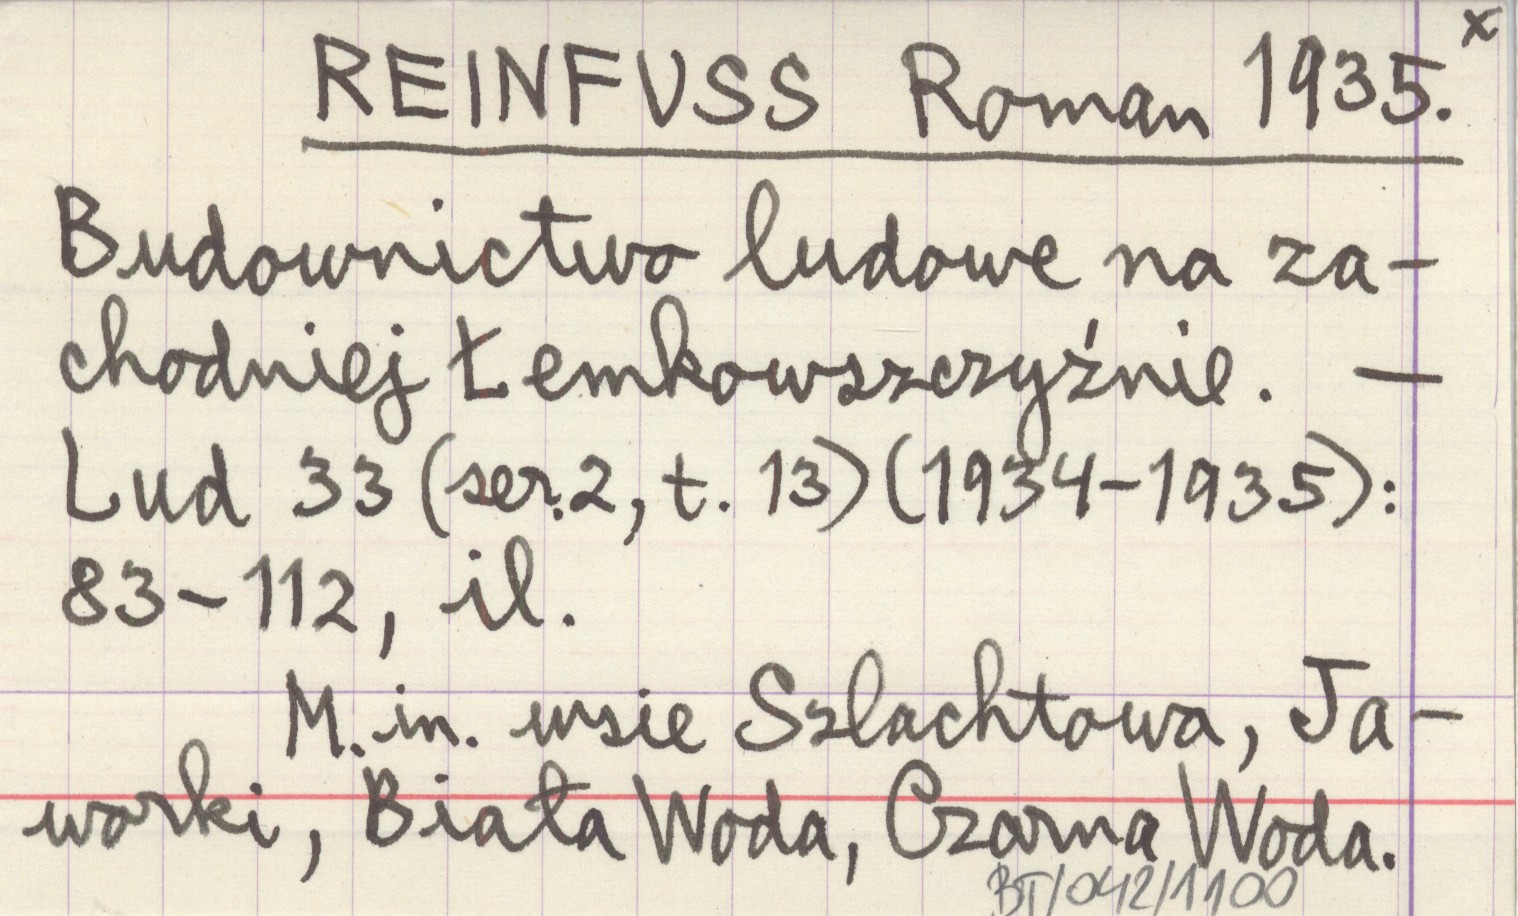 REINFUSS Roman 1935. x
Budownictwo ludowe na za-
chodniej Łemkowszczyźnie. —
Lud 33 (ser. 2, t. 13) (1934-1935):
83-112, il.
M. in. wsie Szlachtowa, Ja-
worki, Biała Woda, Czarna Woda.
BT/042/1100